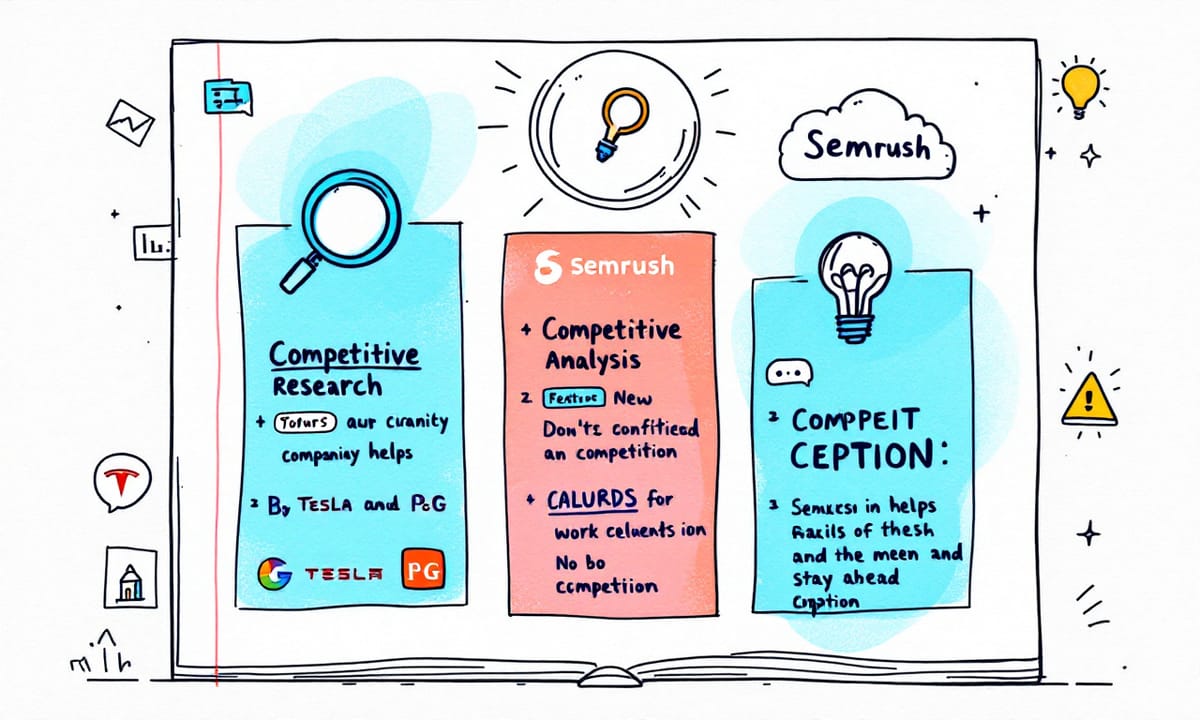 Semrush
Competitive
Research
+ Toturs aur curanity
companiay helps
2 By TESLA and P&G
G TESLA PG
Semrush
+ Competitive
Analysis
2 New
Don't confitiead
an competition
+ CALURDS for
work celuents ion
No bo
competiion
COMPPEIT
CEPTION:
in helps
of thesh
and the meen and
stay ahead